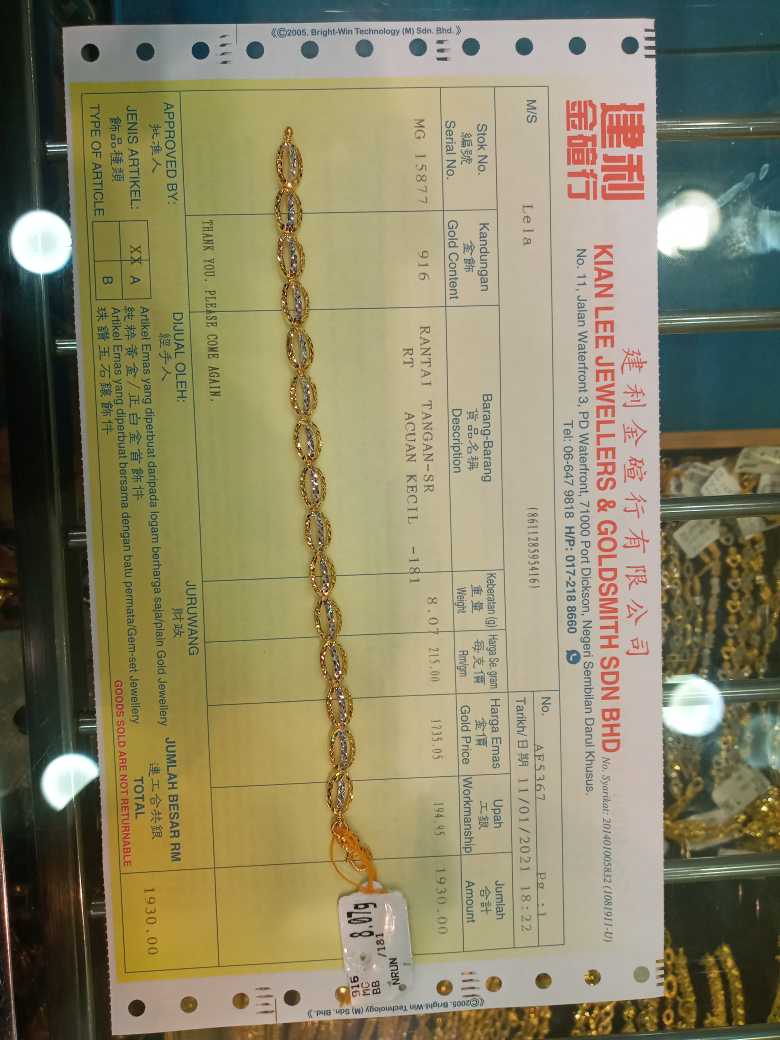 《©2005. Bright-Win Technology (M) Sdn. Bhd.》
建利
金磑行
建利金磑行有限公司
KIAN LEE JEWELLERS & GOLDSMITH SDN BHD No. Syarikat: 201401005832 (1081911-U)
No. 11, Jalan Waterfront 3, PD Waterfront, 71000 Port Dickson, Negeri Sembilan Darul Khusus.
Tel: 06-647 9818 H/P: 017-218 8660
M/S Lela
(861128595416)
No. AF5367 Pg :1
Tarikh/日期 11/01/2021 18:22
Stok No. 編號 Serial No.
Kandungan 金飾 Gold Content
Barang-Barang 貨品名稱 Description
Keberatan (g) 重量 Weight
Harga Se. gram 每克價 Rm/gm
Harga Emas 金價 Gold Price
Upah 工銀 Workmanship
Jumlah 合計 Amount
MG 15877 916 RANTAI TANGAN-SR 8.07 215.00 1735.05 194.95 1930.00
RT ACUAN KECIL -181
THANK YOU, PLEASE COME AGAIN.
APPROVED BY: 批准人
DIJUAL OLEH: 經手人
JURUWANG 財政
JUMLAH BESAR RM 連工合共銀 TOTAL
1930.00
JENIS ARTIKEL: 飾品種類 TYPE OF ARTICLE
XX A Artikel Emas yang diperbuat daripada logam berharga saja/plain Gold Jewellery
純粹黃金/正白金首飾件
B Artikel Emas yang diperbuat bersama dengan batu permata/Gem-set Jewellery
珠鑽玉石鑲飾件
GOODS SOLD ARE NOT RETURNABLE
《©2005. Bright-Win Technology (M) Sdn. Bhd.》
8.07g
NRUN
/181
BB
MC
916